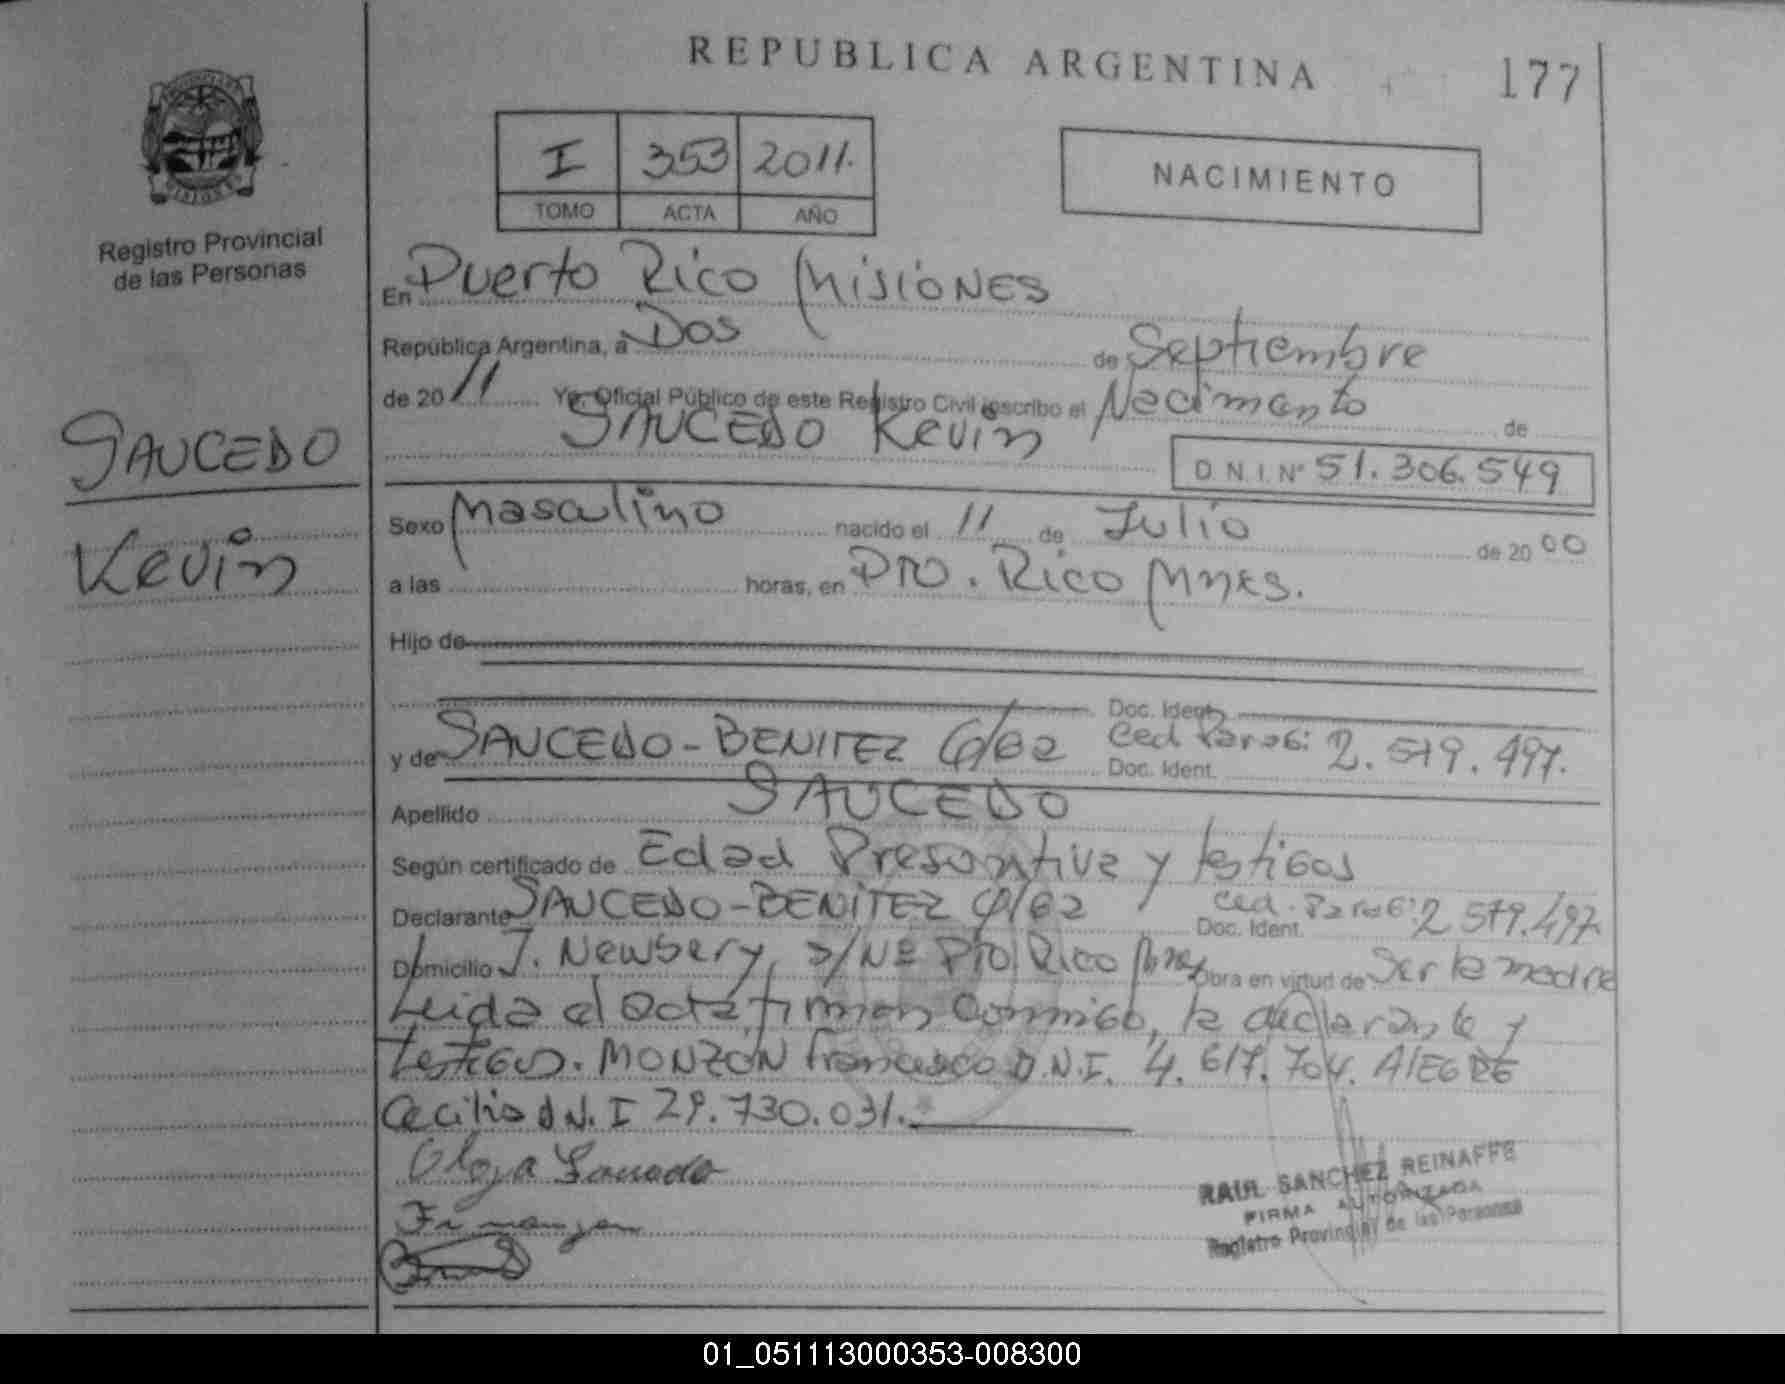 REPUBLICA ARGENTINA
177
I 353 2011.
TOMO ACTA AÑO
NACIMIENTO
Registro Provincial
de las Personas
SAUCEDO
Kevin
En Puerto Rico Misiones
República Argentina, a Dos de Septiembre
de 20 11 Yo, Oficial Público de este Registro Civil inscribo el Nacimiento de
SAUCEDO Kevin
D.N.I. Nº 51.306.549
Sexo Masculino nacido el 11 de Julio de 20 00
a las horas, en Pto. Rico Mnes.
Hijo de
Doc. Ident.
y de SAUCEDO-BENITEZ Olga Ced Parag: 2.579.497.
Doc. Ident.
Apellido SAUCEDO
Según certificado de Edad Presuntiva y testigos
Declarante SAUCEDO-BENITEZ Olga Ced. Parag: 2.579.497
Doc. Ident.
Domicilio J. Newbery, s/Nº Pto Rico Mnes Obra en virtud de Ser la madre
Leida el acta firman conmigo, la declarante y
testigos. MONZÓN Francisco D.N.I. 4.617.704. AlEGRE
Cecilia D.N.I 29.730.031.
Olga Saucedo
RAUL SANCHEZ REINAFFE
FIRMA AUTORIZADA
Registro Provincial de las Personas
01_051113000353-008300